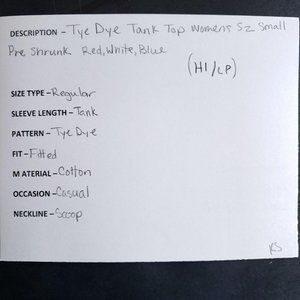 DESCRIPTION - Tye Dye Tank Top Womens Sz Small
Pre Shrunk Red, White, Blue
(HI/LP)
SIZE TYPE - Regular
SLEEVE LENGTH - Tank
PATTERN - Tye Dye
FIT - Fitted
MATERIAL - Cotton
OCCASION - Casual
NECKLINE - Scoop
KS